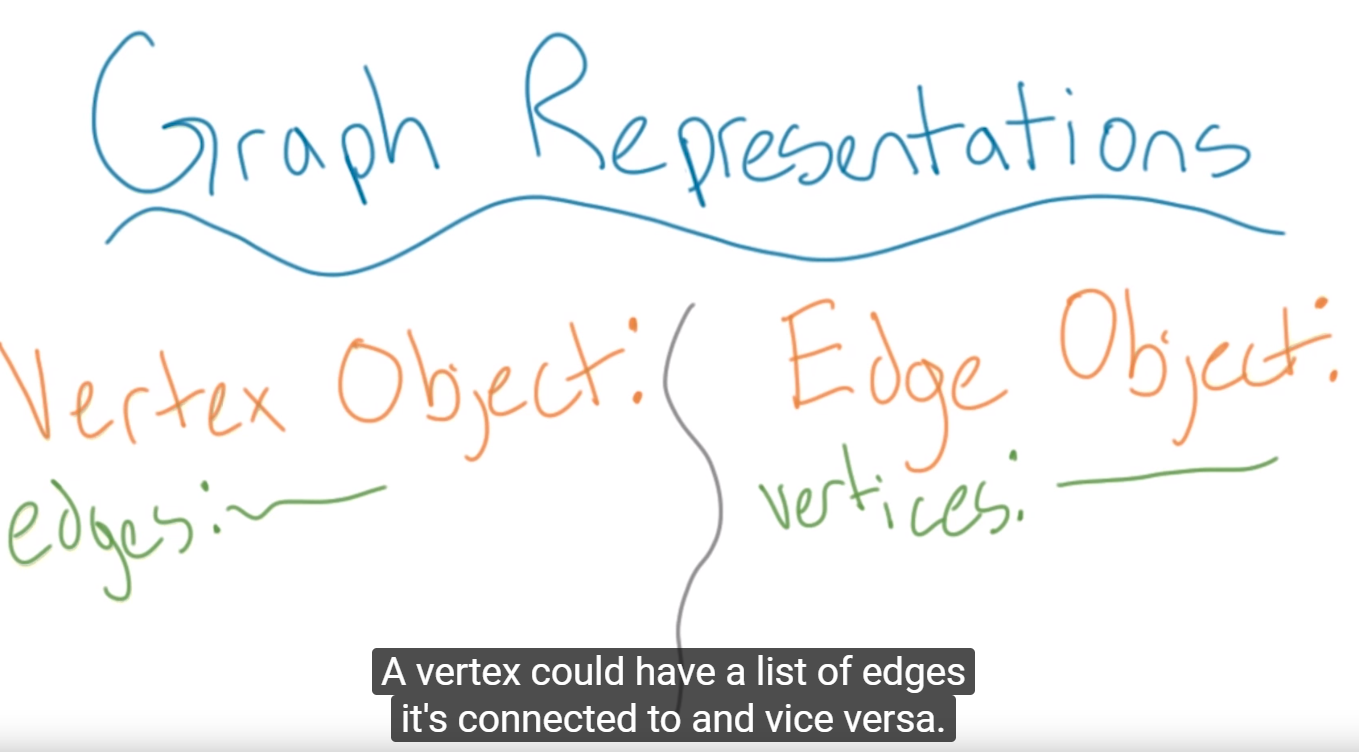 Graph Representations
Vertex Object:
edges:
Edge Object:
vertices:
A vertex could have a list of edges
it's connected to and vice versa.